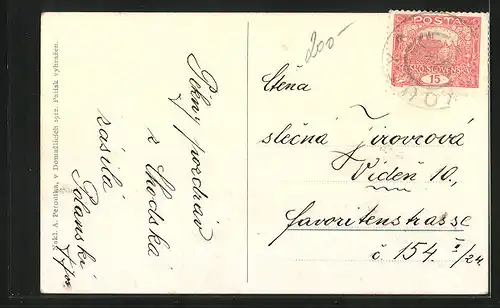 Nákl. A. Peroutka, v Domažlicích 1912. Potisk vyhražen.
Pěkný pozdrav
z Chodska
zasílá
Polanski
200-
POSTA
ČESKOSLOVENSKÁ
15
Ctěná
slečna Jirovcová
Videň 10.,
favoritenstrasse
č. 154 I/24